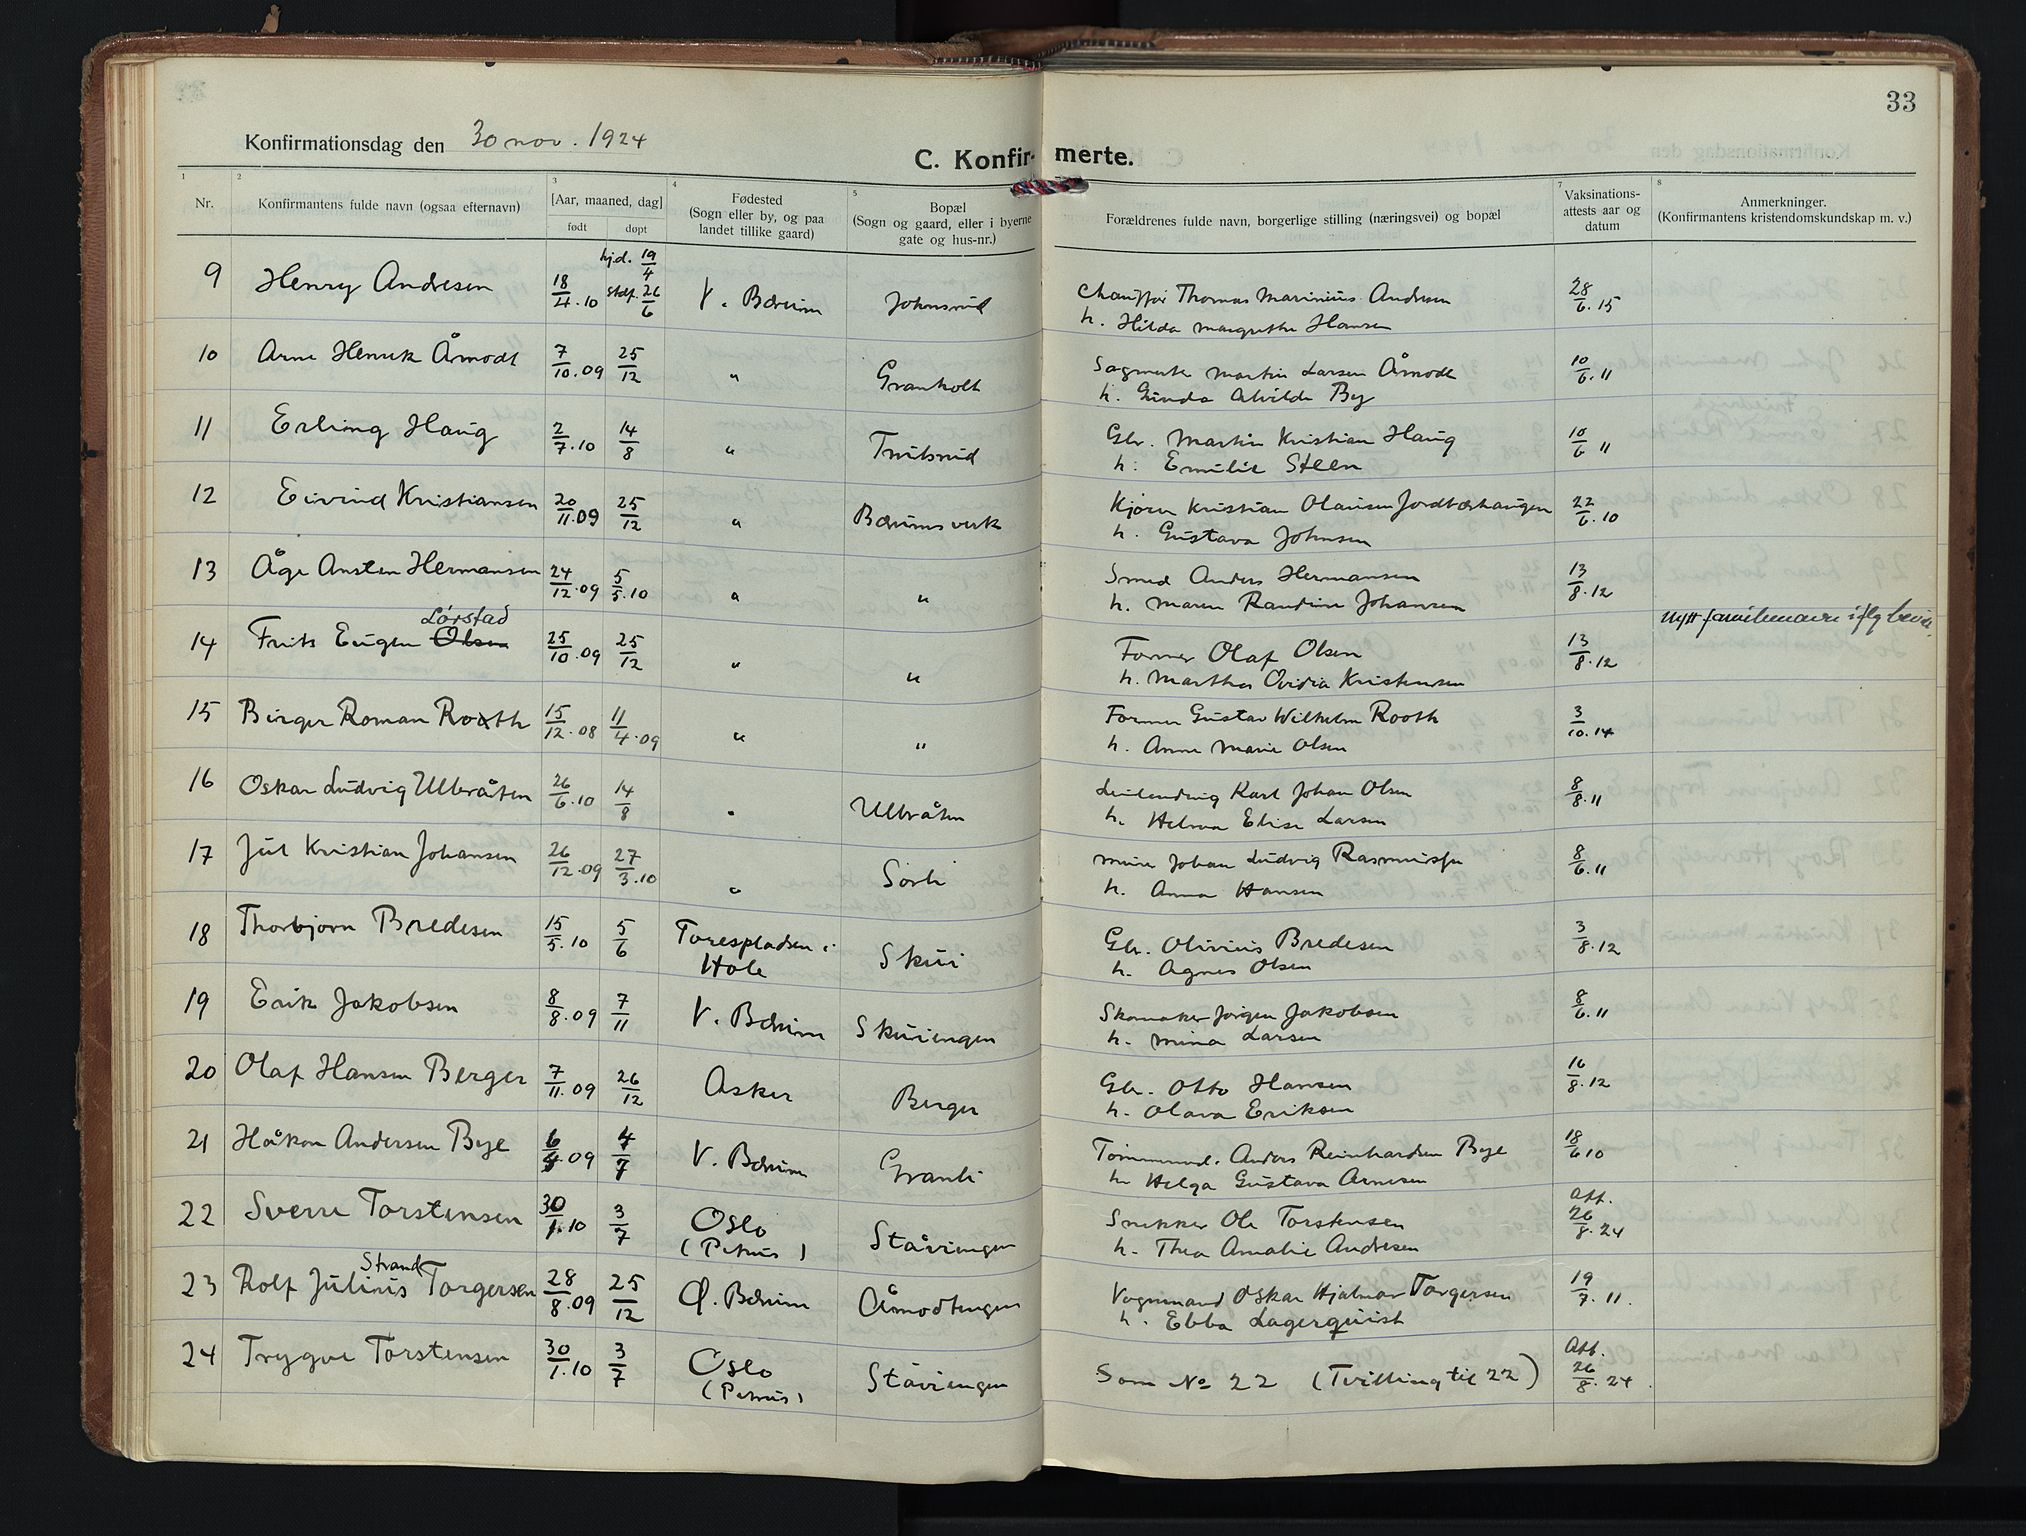 33
Konfirmationsdag den 30 nov. 1924
C. Konfirmerte.
1 2 3 4 5 7 8
Nr. Konfirmantens fulde navn (ogsaa efternavn) [Aar, maaned, dag] født døpt Fødested (Sogn eller by, og paa landet tillike gaard) Bopæl (Sogn og gaard, eller i byerne gate og hus-nr.) Forældrenes fulde navn, borgerlige stilling (næringsvei) og bopæl Vaksinations-attests aar og datum Anmerkninger. (Konfirmantens kristendomskundskap m. v.)
9 Henry Andresen 18/4.10 hj.d. 19/4 stdf. 26/6 V. Bærum Johnsrud Chauffør Thomas Marinius Andresen 28/6.15
h. Hilda Margrethe Hansen
10 Arne Henrik Åmodt 7/10.09 25/12 " Granholt Sagmester Martin Larsen Åmodt 10/6.11
h. Gunda Alvilde By
11 Erling Haug 2/7.10 14/8 " Trulsrud Gbr. Martin Kristian Haug 10/6 11
h. Emilie Steen
12 Eivind Kristiansen 20/11.09 25/12 " Bærums verk Kjører Kristian Olausen Jordbærhaugen 22/6.10
h. Gustava Johnsen
13 Åge Ansten Hermansen 24/12.09 5/5.10 " " Smed Anders Hermansen 13/8.12
h. Maren Randine Johansen
Lørstad nytt familienavn iflg bevil.
14 Frits Eugen Olsen 25/10.09 25/12 " " Former Olaf Olsen 13/8.12
h. Martha Ovidia Kristensen
15 Birger Roman Rooth 15/12.08 11/4.09 " " Former Gustav Wilhelm Rooth 3/10.14
h. Anne Marie Olsen
16 Oskar Ludvig Ulbråten 26/6.10 14/8 " Ulbråten Leilending Karl Johan Olsen 8/8.11
h. Helma Elise Larsen
17 Jul Kristian Johansen 26/12.09 27/3.10 " Sørli Murer Johan Ludvig Rasmussen 8/6.11
h. Anna Hansen
18 Thorbjørn Bredesen 15/5.10 5/6 Torespladsen i Hole Skui Gbr. Olivius Bredesen 3/8.12
h. Agnes Olsen
19 Erik Jakobsen 8/8.09 7/11 V. Bærum Skuiengen Skomaker Jørgen Jakobsen 8/6.11
h. Mina Larsen
20 Olaf Hansen Berger 7/11.09 26/12 Asker Berger Gbr. Otto Hansen 16/8.12
h. Olava Eriksen
21 Håkon Andersen Bye 6/4.09 4/7 V. Bærum Granli Tømmermd. Anders Reinhardsen Bye 18/6 10
h. Helga Gustava Arnesen
22 Sverre Torstensen 30/1.10 3/7 Oslo (Petrus) Ståviengen Snekker Ole Torstensen Att. 26/8.24
h. Thea Amalie Andresen
Strand
23 Rolf Julius Torgersen 28/8.09 25/12 Ø. Bærum Åmodtengen Vognmand Oskar Hjalmar Torgersen 19/7.11.
h. Ebba Lagerquist
24 Trygve Torstensen 30/1.10 3/7 Oslo (Petrus) Ståviengen Som No 22 (Tvilling til 22) Att. 26/8.24